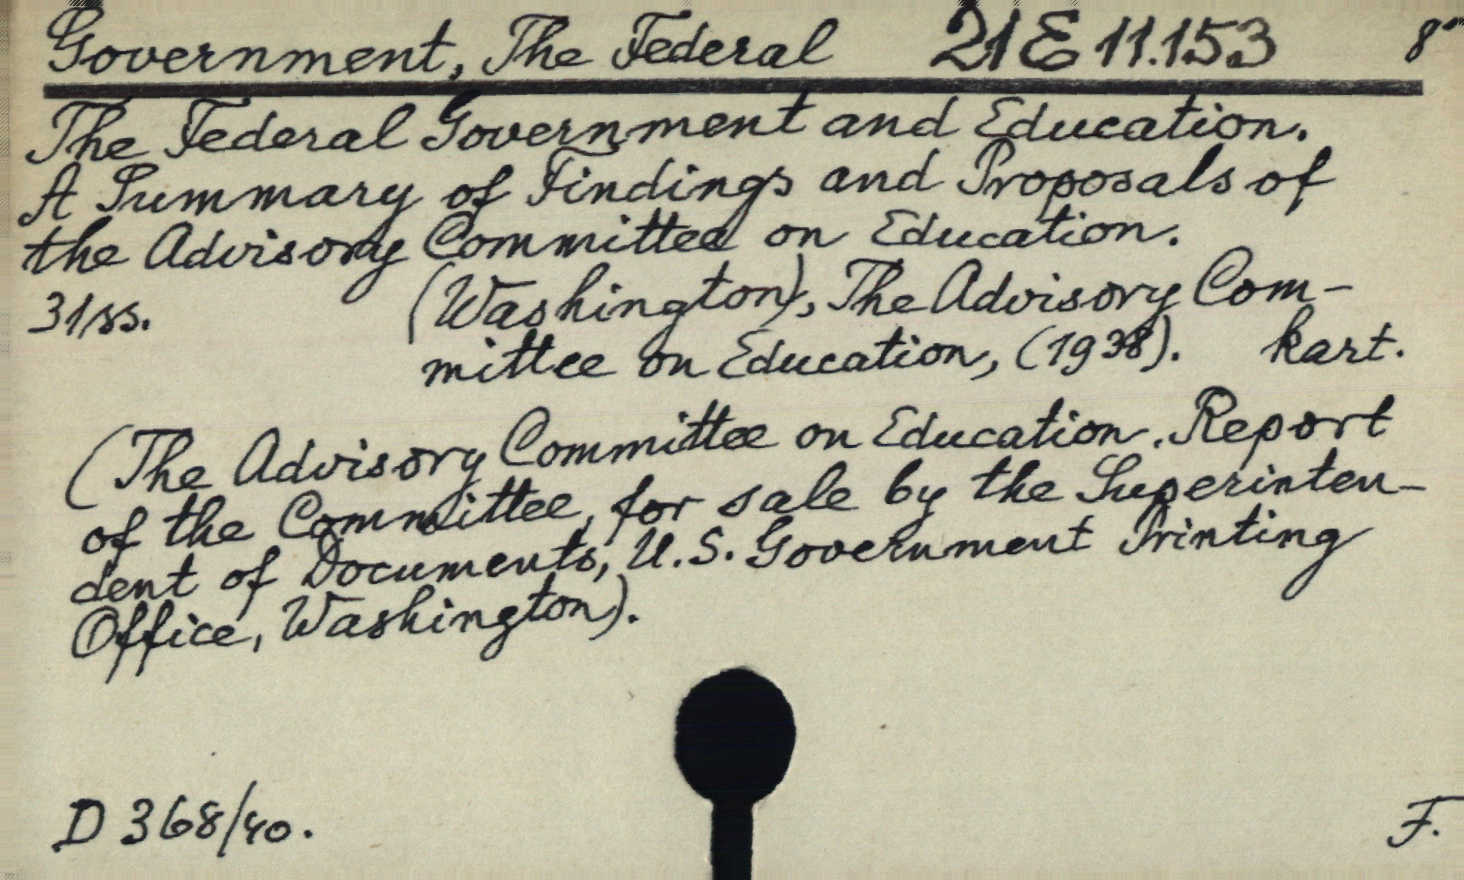 Government, The Federal 21 E 11.153 8°
The Federal Government and Education.
A Summary of Findings and Proposals of
the Advisory Committee on Education.
31 ss. (Washington), The Advisory Com-
mittee on Education, (1938). kart.
(The Advisory Committee on Education. Report
of the Committee, for sale by the Superinten-
dent of Documents, U.S. Government Printing
Office, Washington).
D 368/40. F.